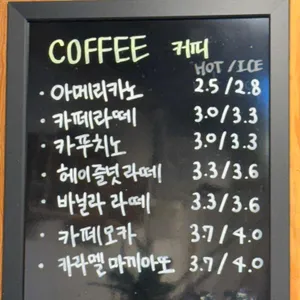 COFFEE 커피
HOT / ICE
· 아메리카노 2.5 / 2.8
· 카페라떼 3.0 / 3.3
· 카푸치노 3.0 / 3.3
· 헤이즐넛 라떼 3.3 / 3.6
· 바닐라 라떼 3.3 / 3.6
· 카페모카 3.7 / 4.0
· 카라멜 마끼아또 3.7 / 4.0